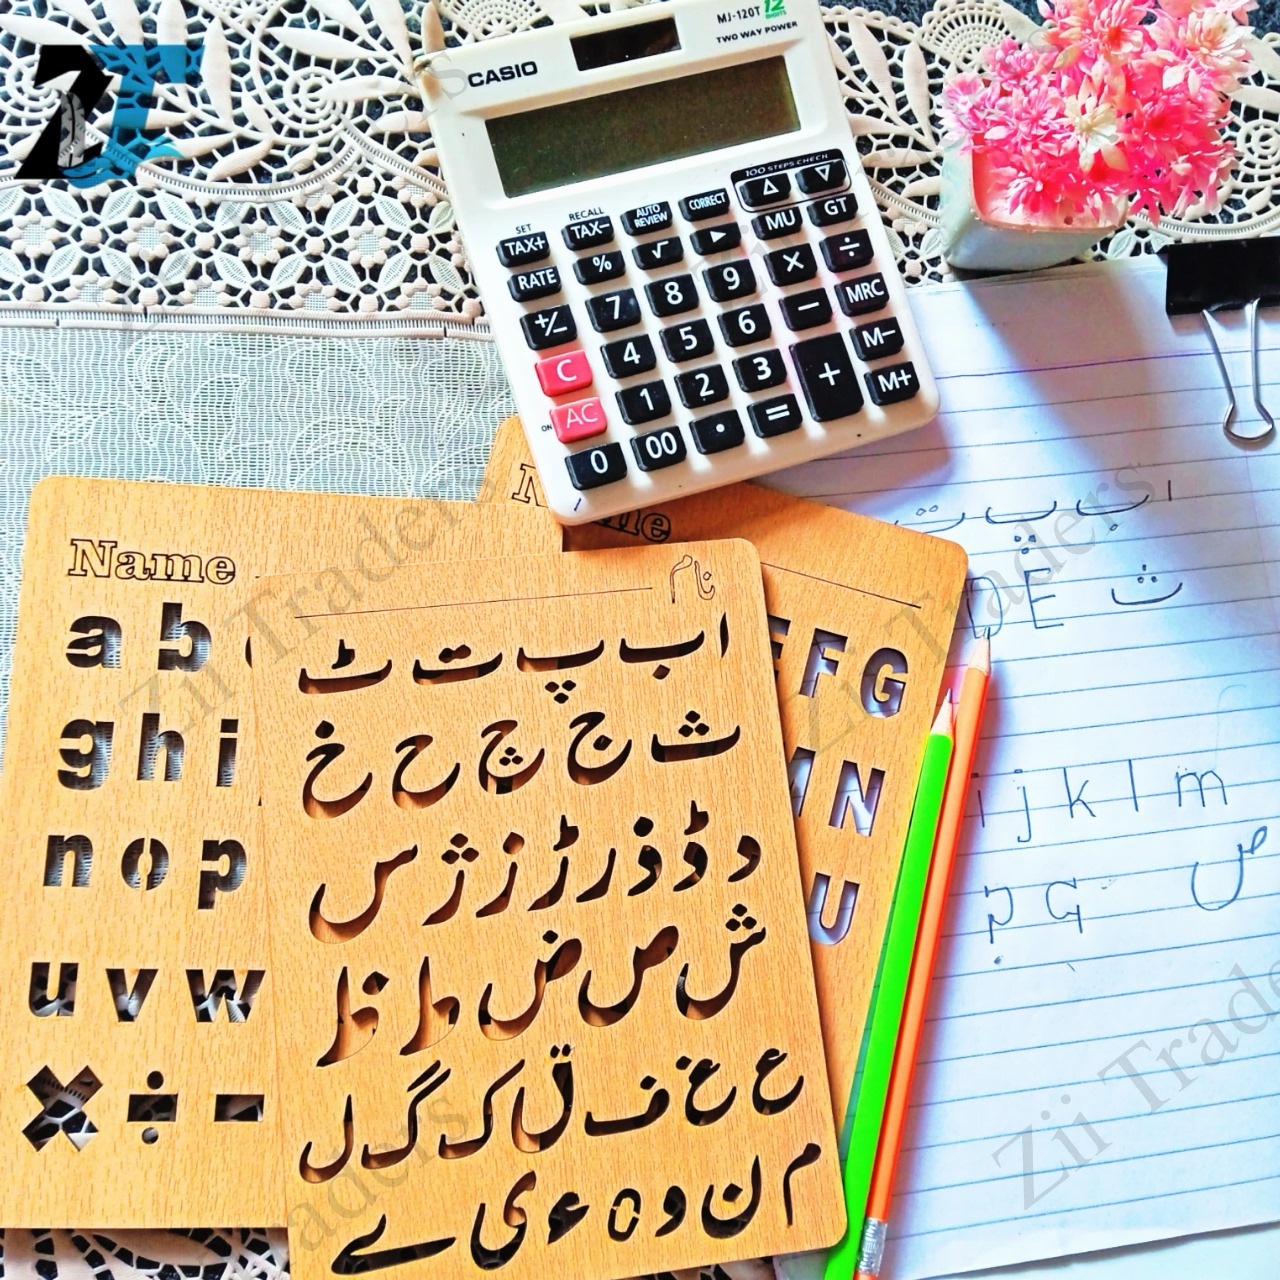 CASIO
MJ-120T 12 DIGITS
TWO WAY POWER
100 STEPS CHECK
SET RECALL AUTO REVIEW CORRECT
TAX+ TAX- √ ▶ MU GT
RATE % 7 8 9 × ÷
+/- 4 5 6 − MRC
C 1 2 3 + M-
ON AC 0 00 • = M+
Name
a b
g h i
n o p
u v w
× ÷ -
نام
ا ب پ ت ٹ
ث ج چ ح خ
د ڈ ذ ر ڑ ز ژ س
ش ص ض ط ظ
ع غ ف ق ک گ ل
م ن و ہ ء ی ے
Name
E F G
N
U
ا ب پ ت
D E
ث
i j k l m
ص
Zii Traders
Zii Traders
Zii Traders
Zii Traders